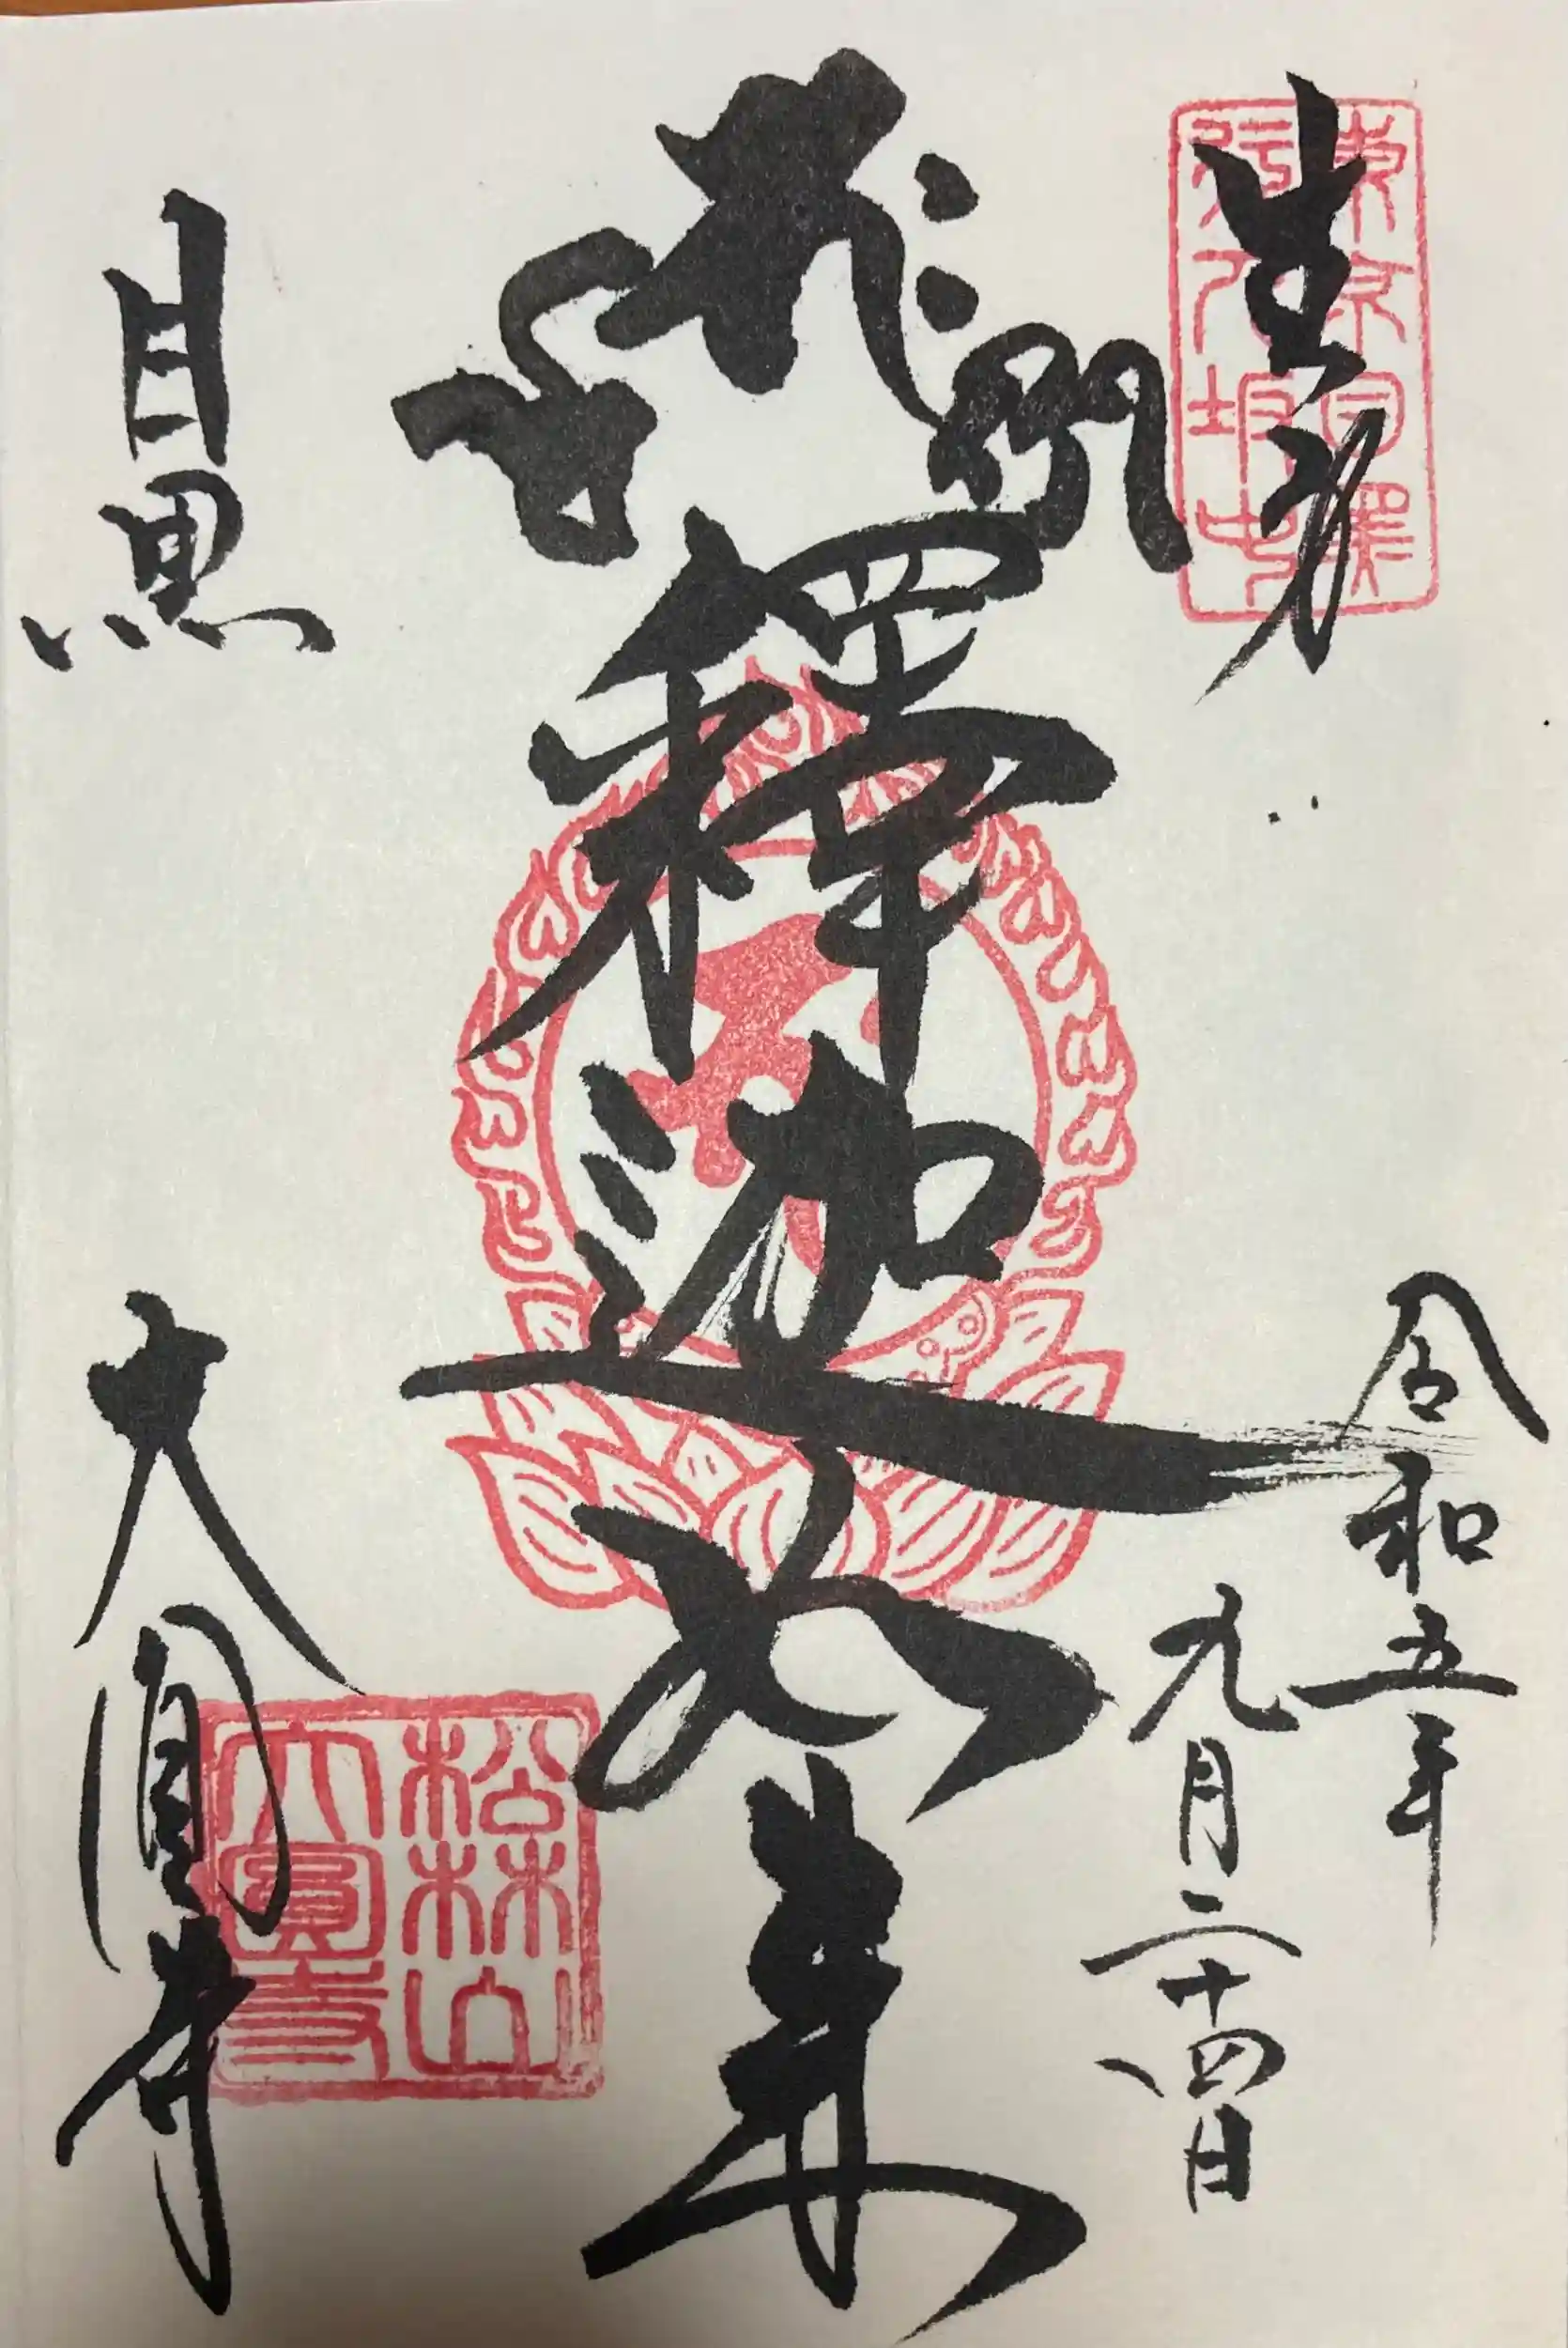 生身
東京目黒
行人坂
釋迦如来
令和五年
九月二十四日
目黒
大圓寺
松林山
大圓寺